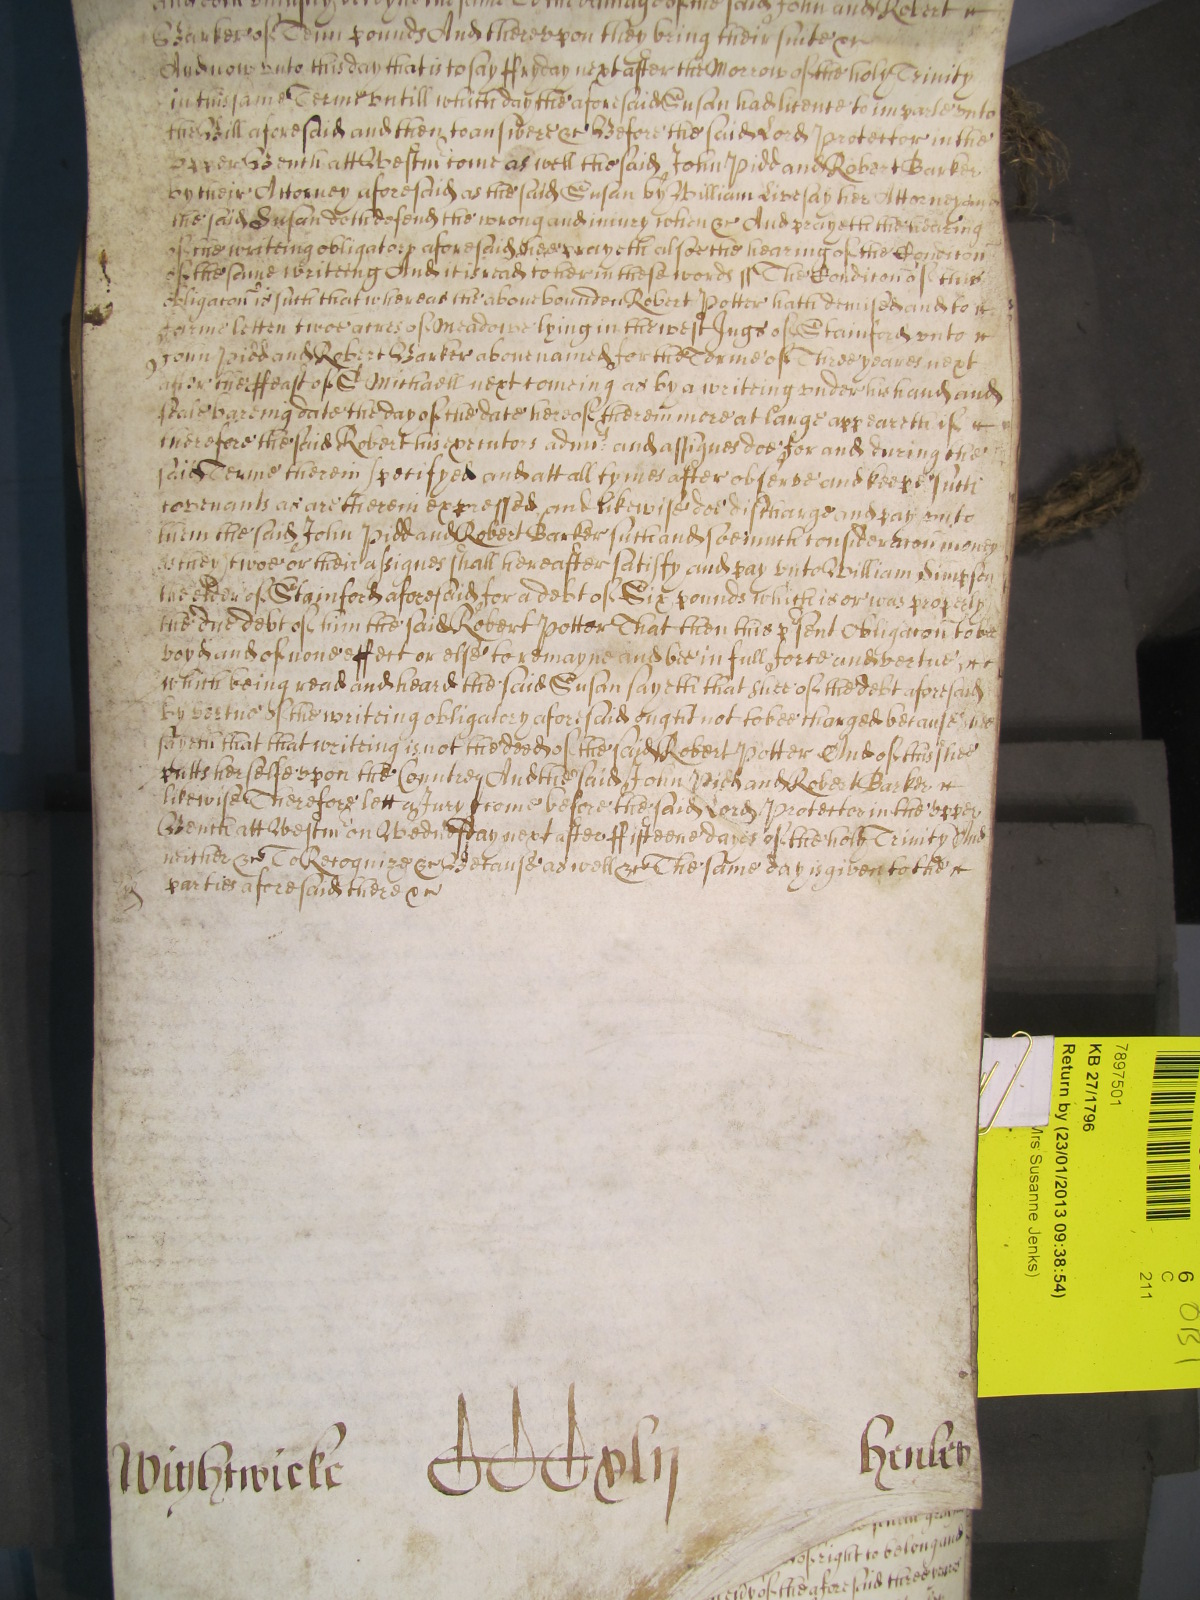 the same To the damage of the said John and Robert
Barker of Tenn pounds And thereupon they bring their suite &c
And now unto this day that is to say ffryday next after the Morrow of the holy Trinity
in this same Terme untill which day the aforesaid Susan had licence to imparle unto
the Bill aforesaid and then to answere &c Before the said Lord Protector in the
upper Bench att Westm come as well the said John Pidd and Robert Barker
by their Attorney aforesaid as the said Susan by William Livesay her Attorney and
the said Susan doth defend the wrong and iniury when &c And prayeth the hearing
of the writeing obligatory aforesaid shee prayeth alsoe the hearing of the Condicon
of the same writeing And it is read to her in these words ss The Condicon of this
obligacon is such that whereas the above bounden Robert Potter hath demised and to
farme letten twoe acres of Meadowe lying in the west Ings of Stainford unto
John Pidd and Robert Barker above named for the Terme of Three yeares next
after the ffeast of St Michaell next comeing as by a writeing under his hand and
seale bareing date the day of the date hereof therein more at large appeareth if
therefore the said Robert his executors admrs and assignes doe for and during the
said Terme therein specifyed and att all tymes after observe and keepe such
covenants as are therein expressed and likewise doe discharge and pay unto
them the said John Pidd and Robert Barker such and soe much consideracon money
as they twoe or their assignes shall hereafter satisfy and pay unto William Simpson
the elder of Stainford aforesaid for a debt of Six pounds which is or was properly
the due debt of him the said Robert Potter That then this psent Obligacon to bee
voyd and of none effect or else to remayne and bee in full force and vertue
which being read and heard the said Susan sayeth that shee of the debt aforesaid
by vertue of the writeing obligatory aforesaid ought not to bee charged because shee
sayeth that that writeing is not the deed of the said Robert Potter And of this shee
putts herselfe upon the Countrey And the said John Pidd and Robert Barker
likewise Therefore lett a Jury come before the said Lord Protector in the upper
Bench att Westm on Wednesday next after ffifteene dayes of the holy Trinity And
neither &c To Recognize &c Because as well &c The same day is given to the
parties aforesaid there &c
Wightwicke CCCxlij Henley
of right to belong and
of the aforesaid three
7897501
KB 27/1796
Return by (23/01/2013 09:38:54)
Mrs Susanne Jenks)
6
C
211